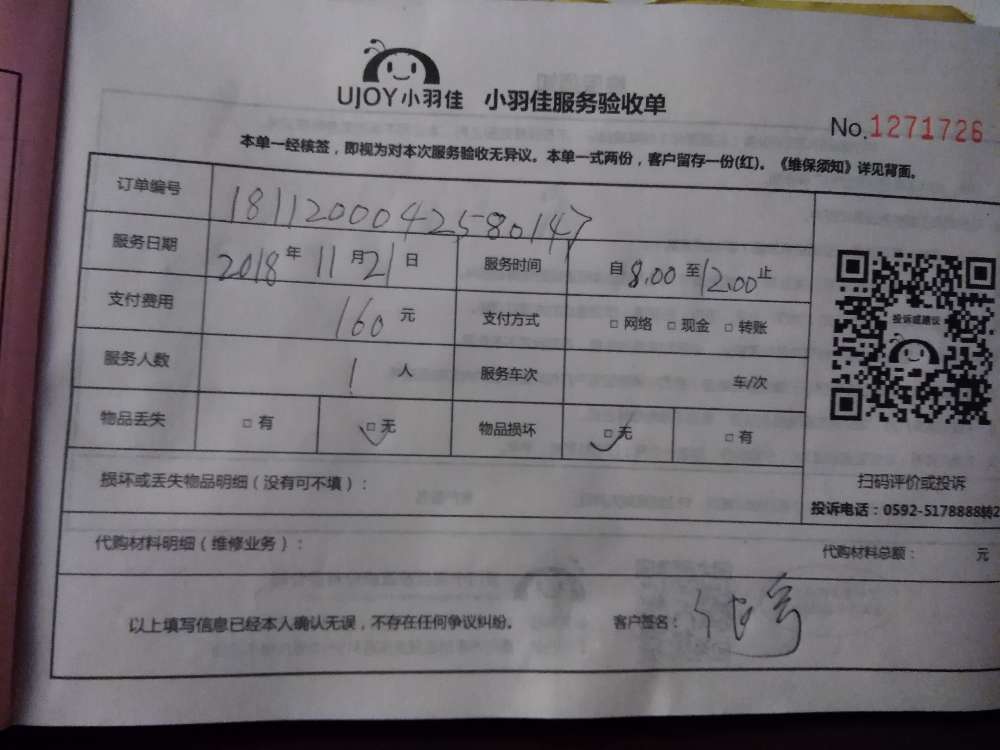 UJOY小羽佳 小羽佳服务验收单
No.1271726
本单一经核签，即视为对本次服务验收无异议。本单一式两份，客户留存一份(红)。《维保须知》详见背面。
订单编号 1811200042580147
服务日期 2018年11月21日 服务时间 自8.00至12.00止
支付费用 160元 支付方式 □网络 □现金 □转账
服务人数 1人 服务车次 车/次
物品丢失 □有 □无 物品损坏 □无 □有
投诉或建议
扫码评价或投诉
投诉电话：0592-5178888转2
损坏或丢失物品明细（没有可不填）：
代购材料明细（维修业务）： 代购材料总额： 元
以上填写信息已经本人确认无误，不存在任何争议纠纷。 客户签名：